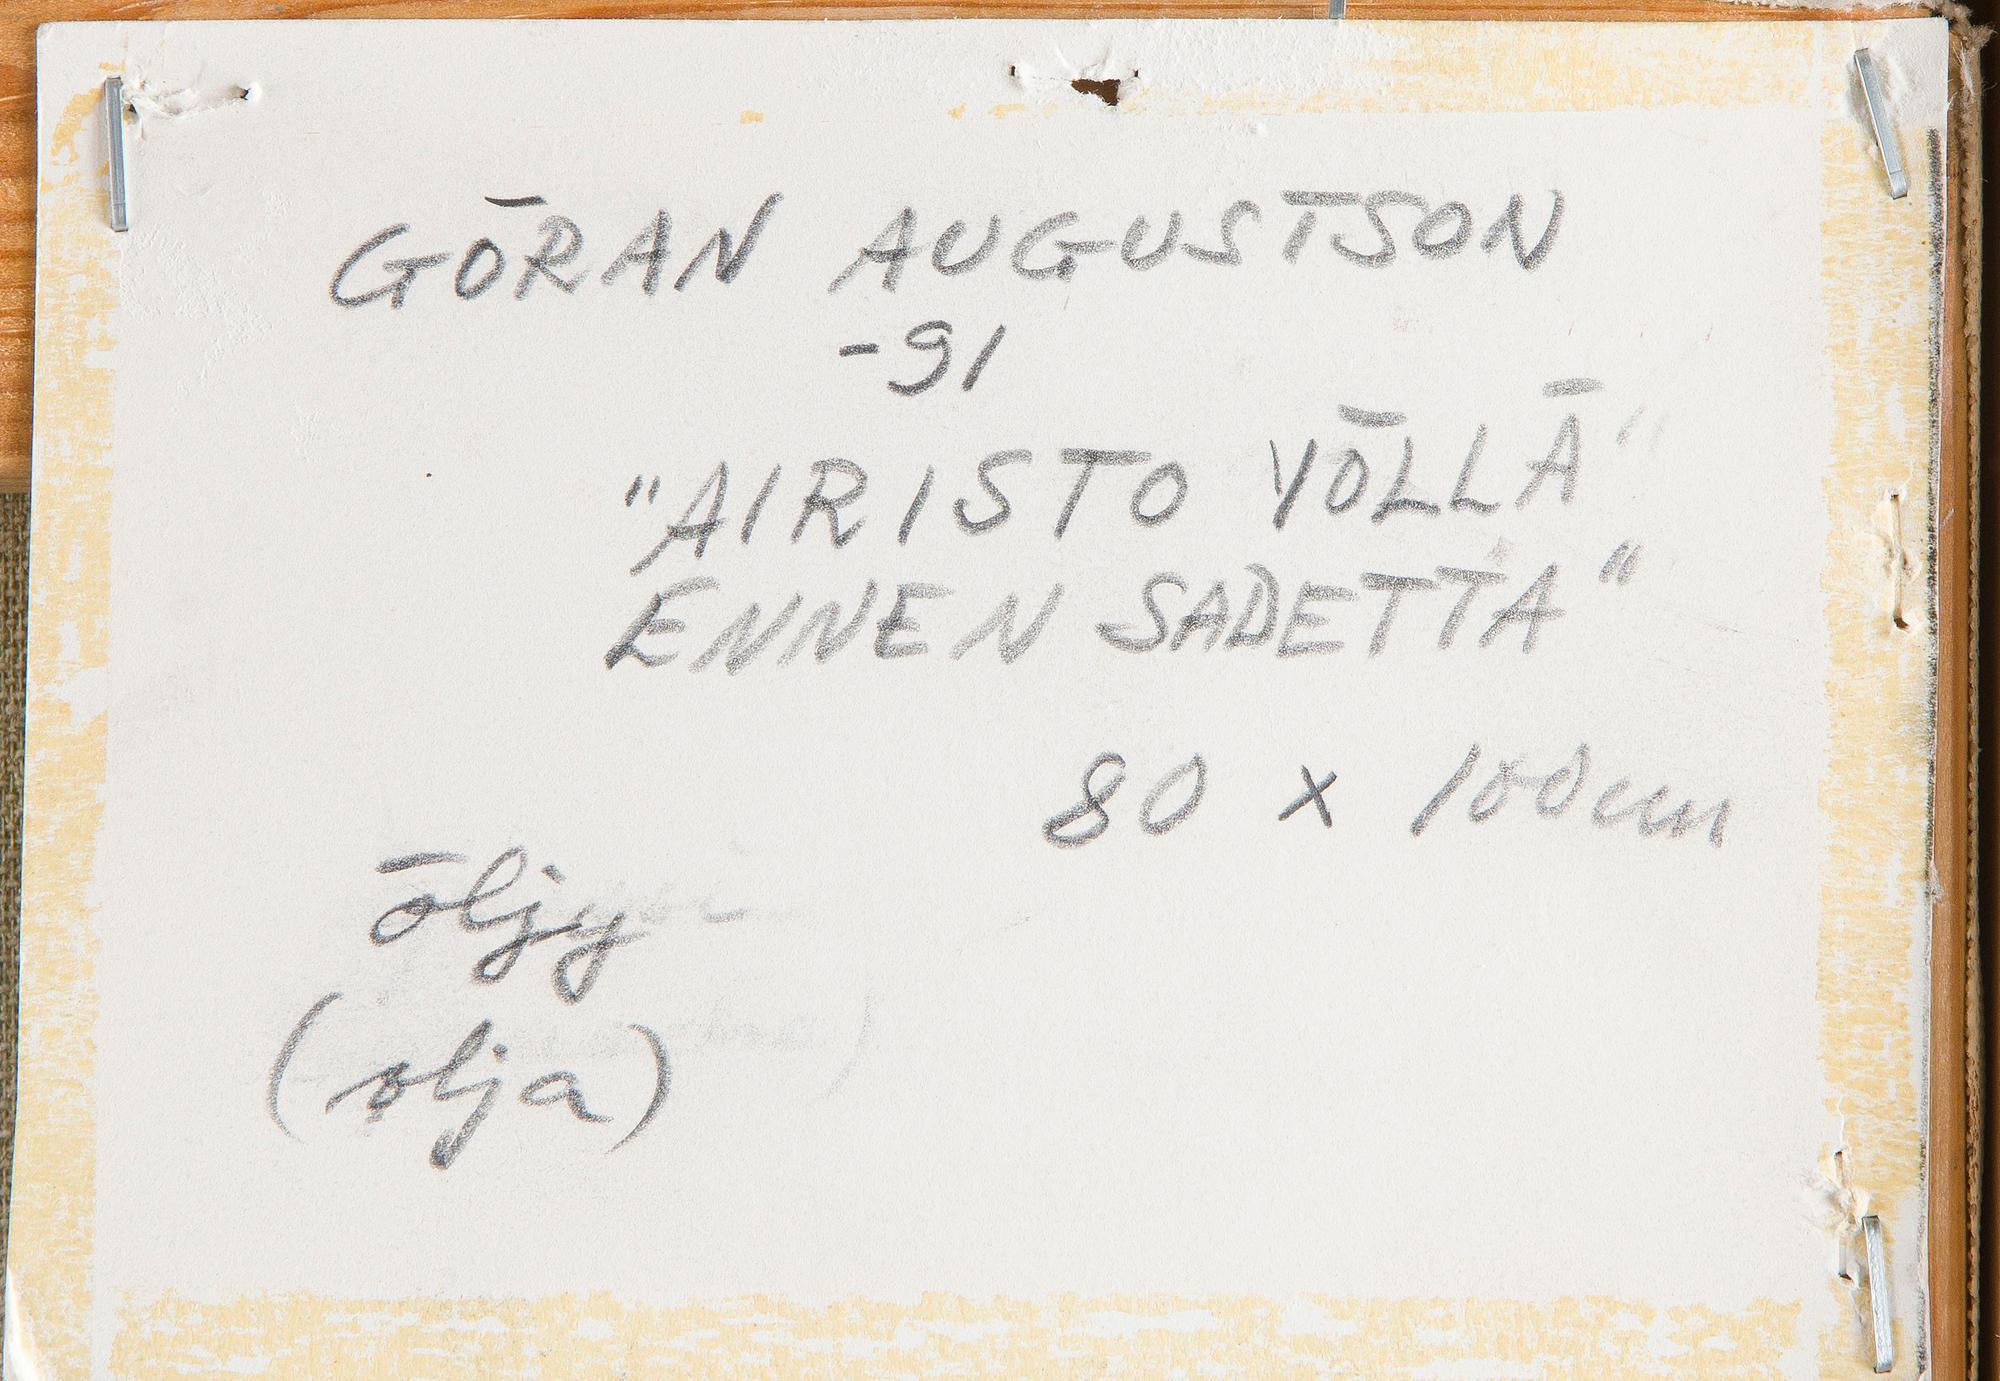 GÖRAN AUGUSTSON
-91
"AIRISTO YÖLLÄ"
ENNEN SADETTA"
80 x 100cm
öljy
(olja)